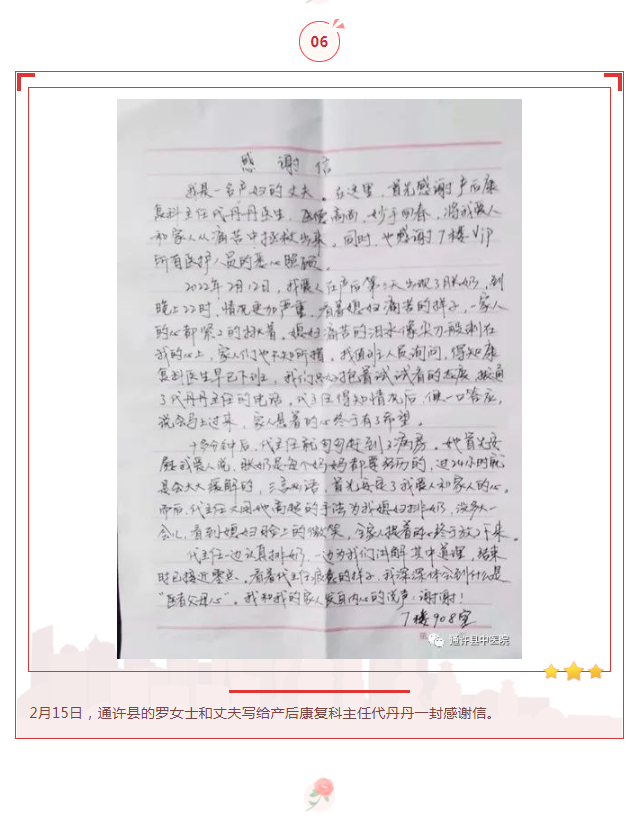 06
感谢信
我是一名产妇的丈夫。在这里,首先感谢产后康
复科主任代丹丹医生,医德高尚,妙手回春,将我爱人
和家人从痛苦中拯救出来,同时,也感谢7楼Vip
所有医护人员的悉心照顾。
2022年2月12日,我爱人在产后第三天出现了胀奶,到
晚上22时,情况更加严重,看着媳妇痛苦的样子,一家人
的心都紧紧的揪着。媳妇痛苦的泪水像尖刀般刺在
我的心上,家人们也不知所措。我值班人员询问,得知康
复科医生早已下班,我们只好抱着试试看的态度,拨通
了代丹丹主任的电话,代主任得知情况后,便一口答应,
说会马上过来,家人悬着的心终于有了希望。
十多分钟后,代主任就匆匆赶到了病房。她首先安
慰我爱人说,胀奶是每个妈妈都要经历的,过24小时就
是会大大缓解的,三言两语,首先安定了我爱人和家人的心。
而后,代主任又用她高超的手法为我媳妇排奶,没多大一
会儿,看到媳妇脸上的微笑,全家人提着的心终于放了下来。
代主任一边认真排奶,一边为我们讲解其中道理,结束
时已接近零点。看着代主任疲惫的样子,我深深体会到什么是
“医者父母心”。我和我的家人发自内心的说声:谢谢!
7楼908室
通许县中医院
2月15日,通许县的罗女士和丈夫写给产后康复科主任代丹丹一封感谢信。